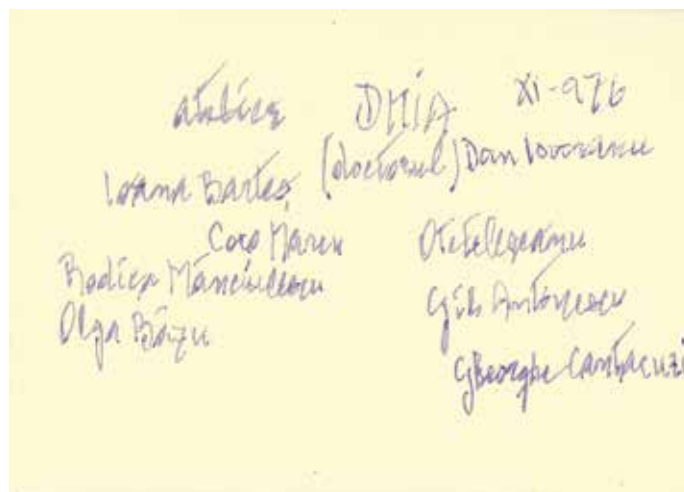 DMIA XI-976
Ioana (doctorul) Dan Iovoranu
Coca Oteteleșanu
Rodica Mănciulescu
Gib Antonescu
Olga Bâzu
Gheorghe Cantacuzi